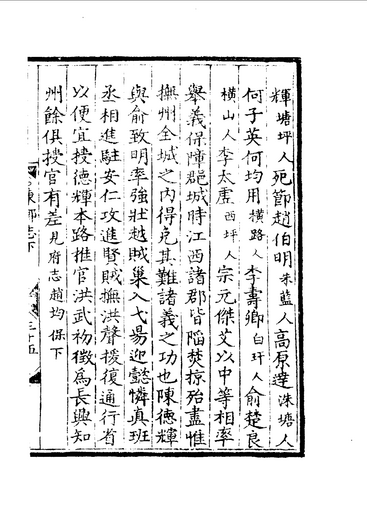 輝塘坪人死節趙伯明朱藍人高原達洙塘人
何子英何均用橫路人李壽卿白玕人俞楚良
橫山人李太虛西坪人宗元傑艾以中等相率
舉義保障郡城時江西諸郡皆陷焚掠殆盡惟
撫州全城之內得免其難諸義之功也陳德輝
與俞致明率強壯越賊巢入弋陽迎懿憐真班
丞相進駐安仁攻進賢賊撫洪聲援復通行省
以便宜授德輝本路推官洪武初徵為長興知
州餘俱授官有差見府志趙均保下
志下
三十五